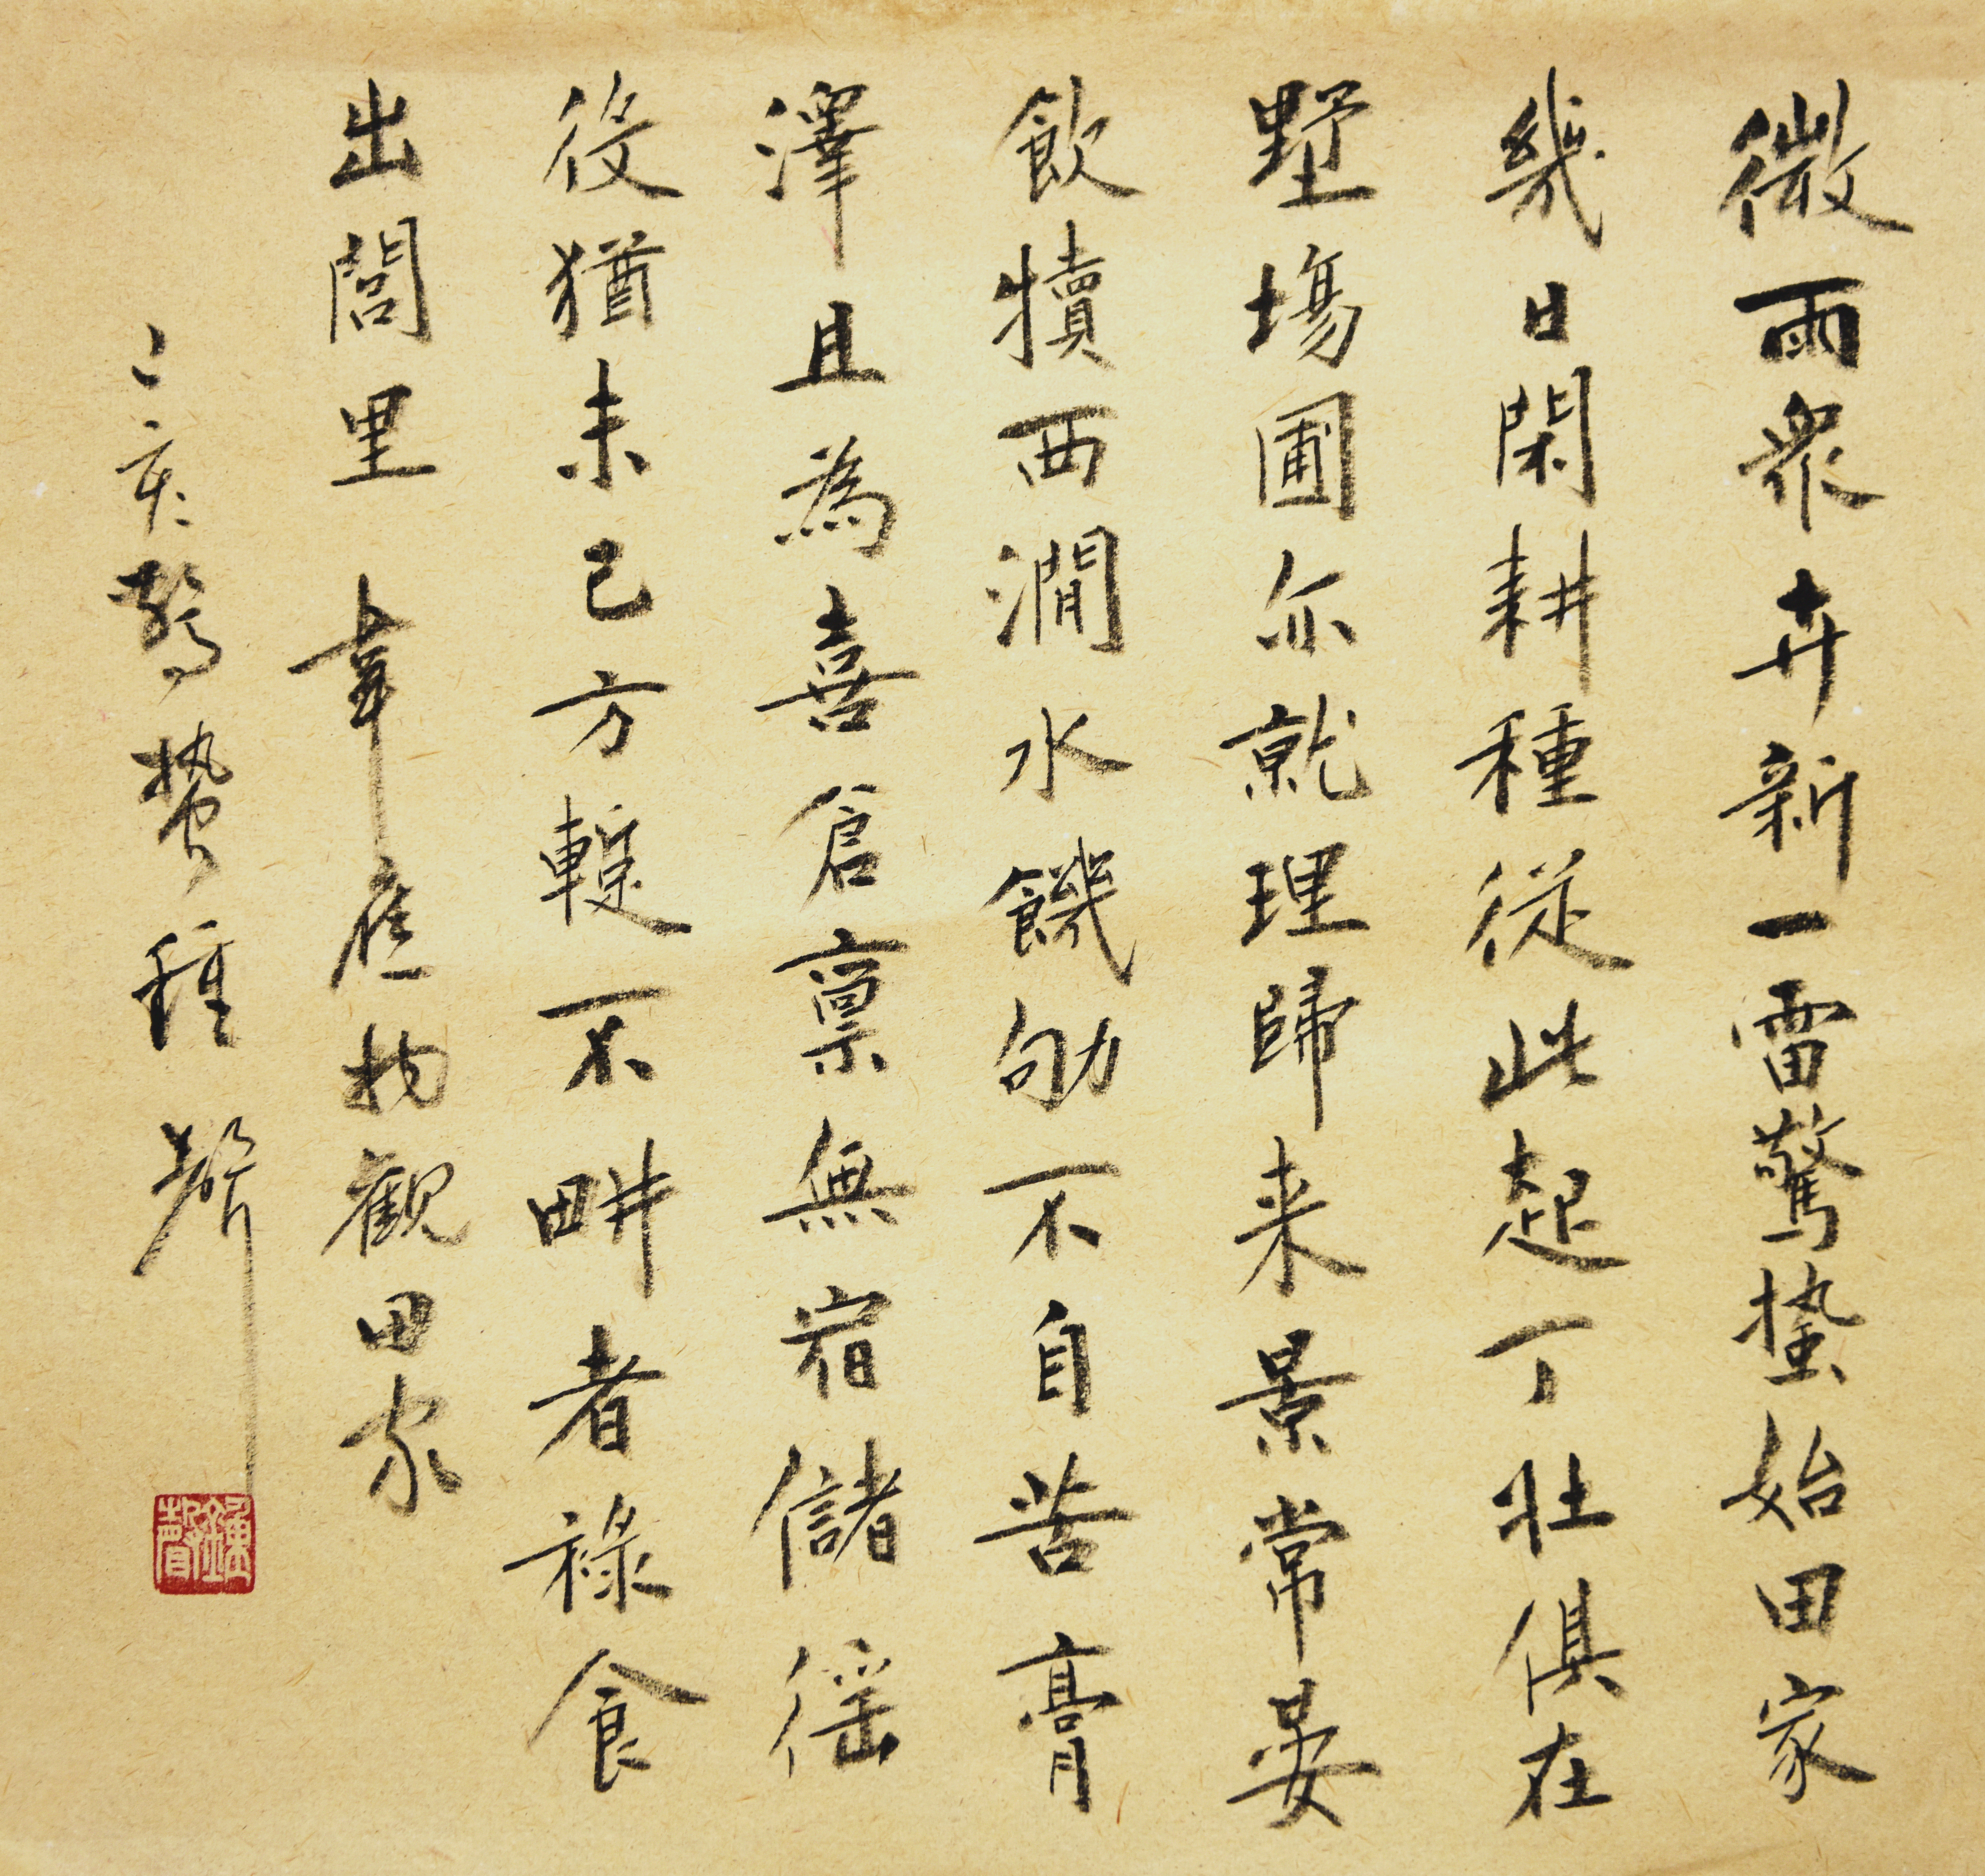 微雨衆卉新一雷驚蟄始田家
幾日閑耕種從此起丁壯俱在
野場圃亦就理歸来景常晏
飲犢西澗水饑劬不自苦膏
澤且為喜倉禀無宿儲徭
役猶未已方慙不畊者祿食
出閭里 韋應物觀田家
亥驚蟄鍾